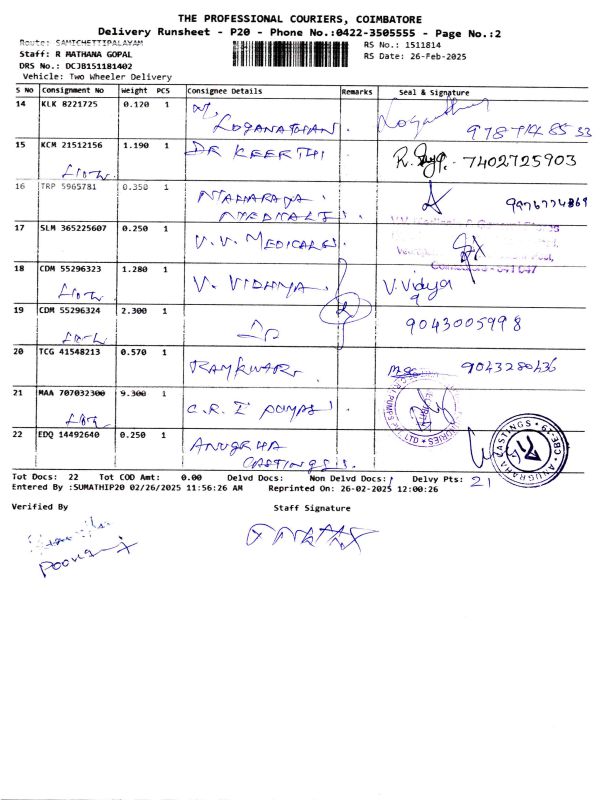 THE PROFESSIONAL COURIERS, COIMBATORE
Delivery Runsheet - P20 - Phone No.:0422-3505555 - Page No.:2
Route: SAMICHETTIPALAYAM
RS No.: 1511814
Staff: R MATHANA GOPAL
RS Date: 26-Feb-2025
DRS No.: DCJB151181402
Vehicle: Two Wheeler Delivery
S No Consignment No Weight PCS Consignee Details Remarks Seal & Signature
14 KLK 8221725 0.120 1 M. LOGANATHAN. Loganathan
15 KCM 21512156 1.190 1 DR KEERTHI 7402725903
16 TRP 5965781 0.350 1
17 SLM 365225607 0.250 1 V.V. MEDICALS
18 CDM 55296323 1.280 1 V. VIDHYA. V. Vidya
19 CDM 55296324 2.300 1 9043005998
20 TCG 41548213 0.570 1 9043280436
21 MAA 707032300 9.300 1 C.R. I PUMPS
22 EDQ 14492640 0.250 1 ANUGRHA CASTINGS
ANUGRAHA CASTINGS • CBE-19
Tot Docs: 22 Tot COD Amt: 0.00 Delvd Docs: Non Delvd Docs: Delvy Pts: 21
Entered By :SUMATHIP20 02/26/2025 11:56:26 AM Reprinted On: 26-02-2025 12:00:26
Verified By Staff Signature